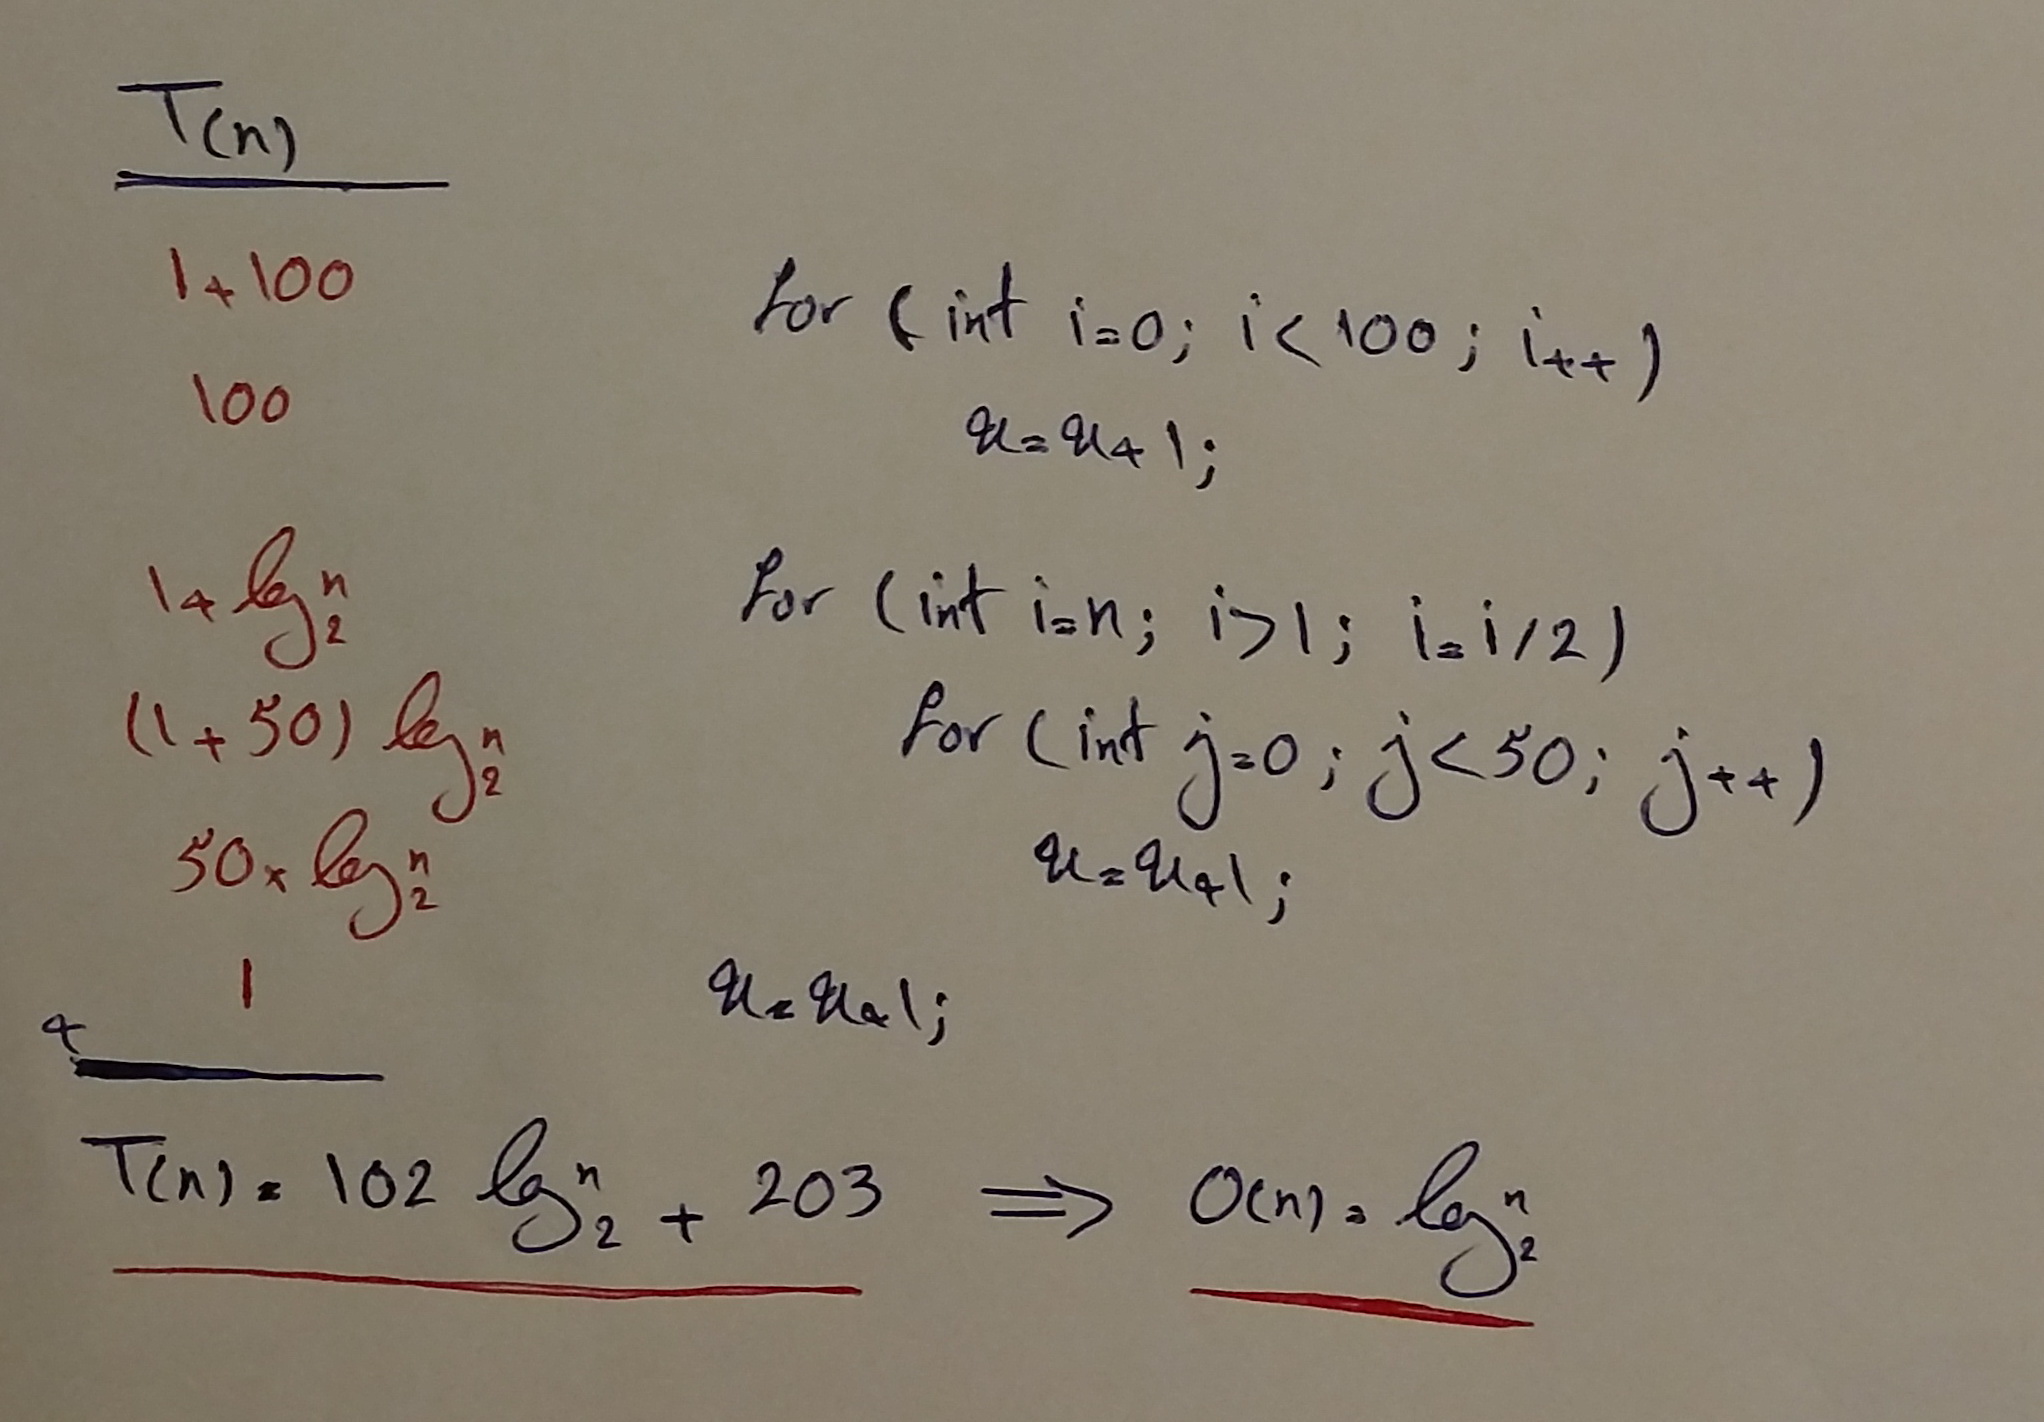 T(n)
1+100 for (int i=0; i<100; i++)
100 x=x+1;
1+log₂ⁿ for (int i=n; i>1; i=i/2)
(1+50) log₂ⁿ for (int j=0; j<50; j++)
50×log₂ⁿ x=x+1;
1 x=x+1;
+
T(n)=102 log₂ⁿ + 203 ⇒ O(n)=log₂ⁿ